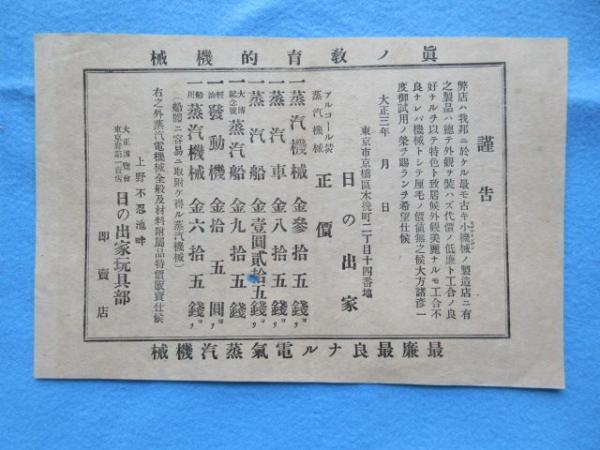 眞ノ教育的機械
謹告
弊店ハ我邦ニ於ケル最モ古キ小機械ノ製造店ニ有
之製品ハ總テ外觀ヲ裝ハズ代價ノ低廉ト工合ノ良
好ナルヲ以テ特色ト致居候外觀美麗ナルモ工合不
良ナレバ機械トシテ厘毛ノ價値無之候大方諸彦一
度御試用ノ榮ヲ賜ランヿ希望仕候
大正三年 月 日
東京市京橋區木挽町二丁目十四番地
日の出家
アルコール焚
蒸汽機械 正價
一蒸汽機械 金參拾五錢ヨリ
一蒸汽車 金八拾五錢ヨリ
一蒸汽船 金壹圓貳拾五錢ヨリ
一大博記念號蒸汽船 金九拾五錢
一輕油發動機 金拾五圓ヨリ
一船用蒸汽機械 金六拾五錢ヨリ
(船體ニ容易ニ取附ケ得ル蒸汽機械)
右之外蒸汽電氣機械全般及材料附屬品特價販賣仕候
上野不忍池畔
大正博覽會
東京館第一賣店
日の出家玩具部
即賣店
最廉最良ナル電氣蒸汽機械